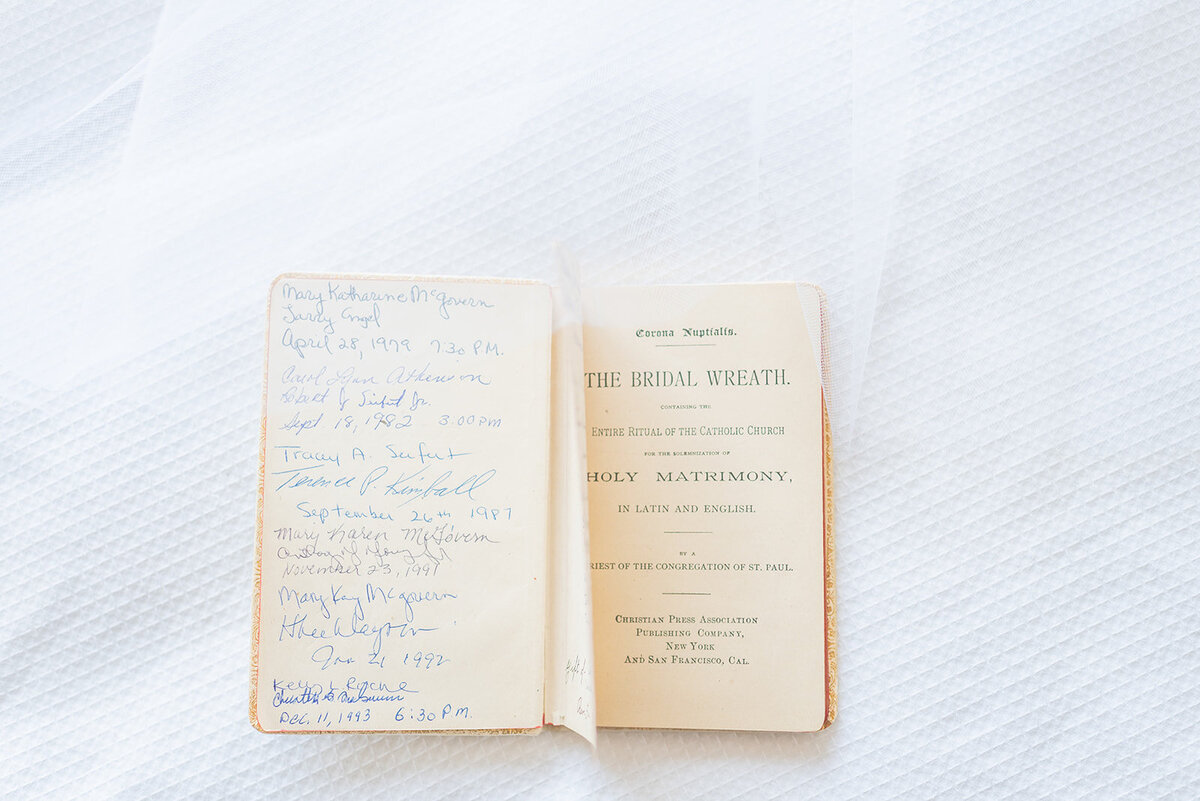 Mary Katharine McGovern
Larry Engel
April 28, 1979 7:30 P.M.
Carol Lynn Atkenson
Robert J Seifert Jr.
Sept. 18, 1982 3:00 PM
Tracey A. Seifert
Terence P. Kimball
September 26th 1987
Mary Karen McGovern
November 23, 1991
Mary Kay McGovern
Jan 21 1992
Kelly Roche
Dec. 11, 1993 6:30 P.M.
Corona Nuptialis.
THE BRIDAL WREATH.
CONTAINING THE
ENTIRE RITUAL OF THE CATHOLIC CHURCH
FOR THE SOLEMNIZATION OF
HOLY MATRIMONY,
IN LATIN AND ENGLISH.
BY A
RIEST OF THE CONGREGATION OF ST. PAUL.
CHRISTIAN PRESS ASSOCIATION
PUBLISHING COMPANY,
NEW YORK
AND SAN FRANCISCO, CAL.